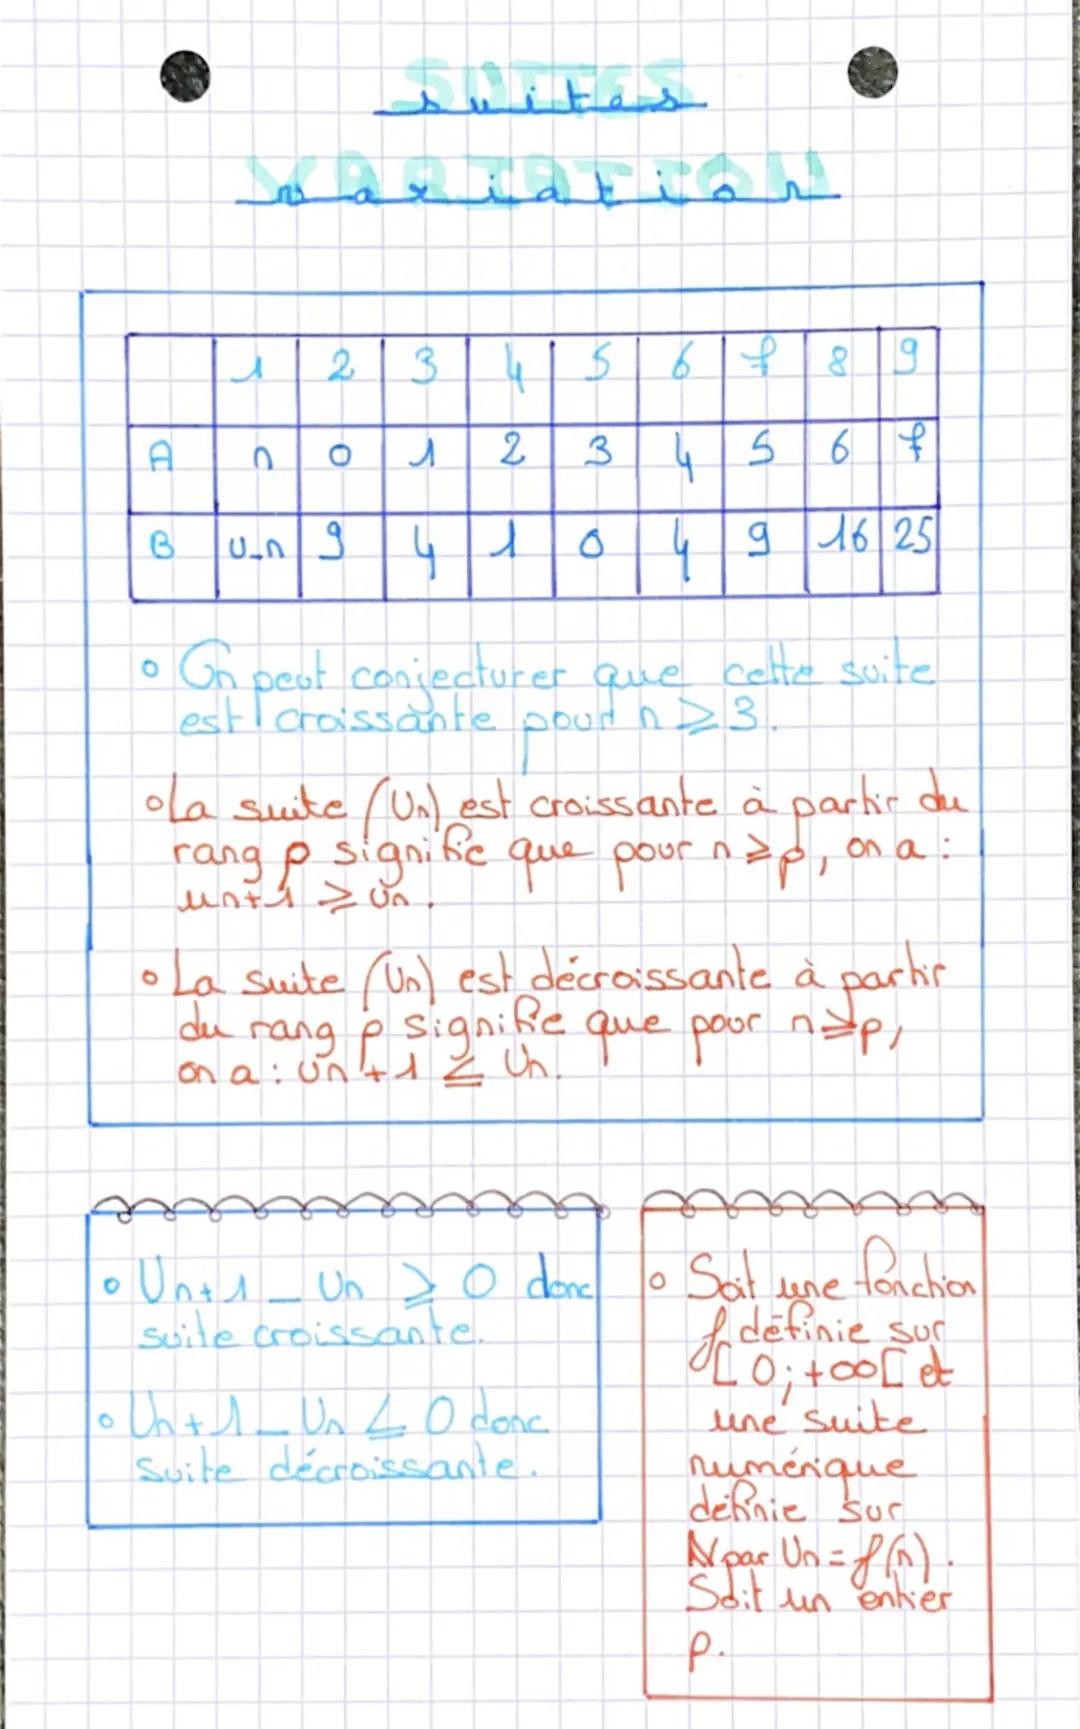 SUITES
suites
VARIATION
variation
1 2 3 4 5 6 7 8 9
A n 0 1 2 3 4 5 6 7
B U_n 9 4 1 0 4 9 16 25
• On peut conjecturer que cette suite
est croissante pour n ⩾ 3.
• La suite (Un) est croissante à partir du
rang p signifie que pour n ⩾ p, on a :
un+1 ⩾ Un.
• La suite (Un) est décroissante à partir
du rang p signifie que pour n ⩾ p,
on a : Un+1 ⩽ Un.
• Un+1 _ Un ⩾ 0 donc
suite croissante.
• Un+1 _ Un ⩽ 0 donc
Suite décroissante.
• Soit une fonction
f définie sur
[0;+∞[ et
une suite
numérique
définie sur
N par Un = f(n).
Soit un entier
p.